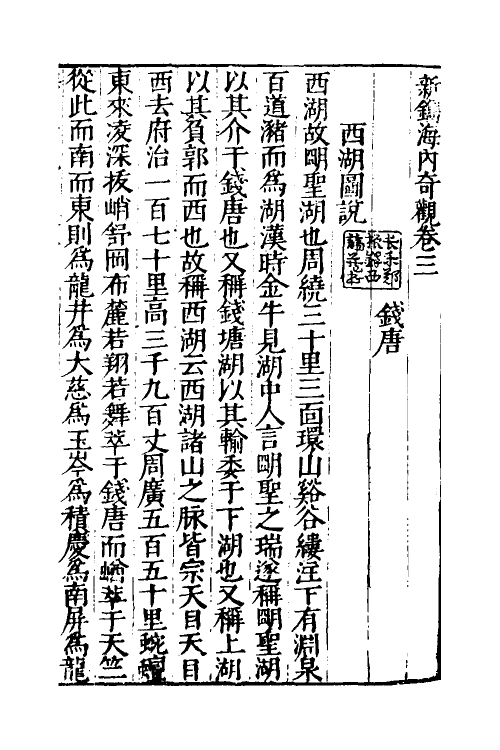 新鐫海內奇觀卷三
錢唐
西湖圖說
西湖故朙聖湖也周繞三十里三面環山谿谷縷注下有淵泉
百道瀦而爲湖漢時金牛見湖中人言朙聖之瑞遂稱朙聖湖
以其介于錢唐也又稱錢塘湖以其輸委于下湖也又稱上湖
以其負郭而西也故稱西湖云西湖諸山之脉皆宗天目天目
西去府治一百七十里高三千九百丈周廣五百五十里蜿蟺
東來凌深拔峭舒岡布麓若翔若舞萃于錢唐而崷崒于天竺
從此而南而東則爲龍井爲大慈爲玉岑爲積慶爲南屏爲龍